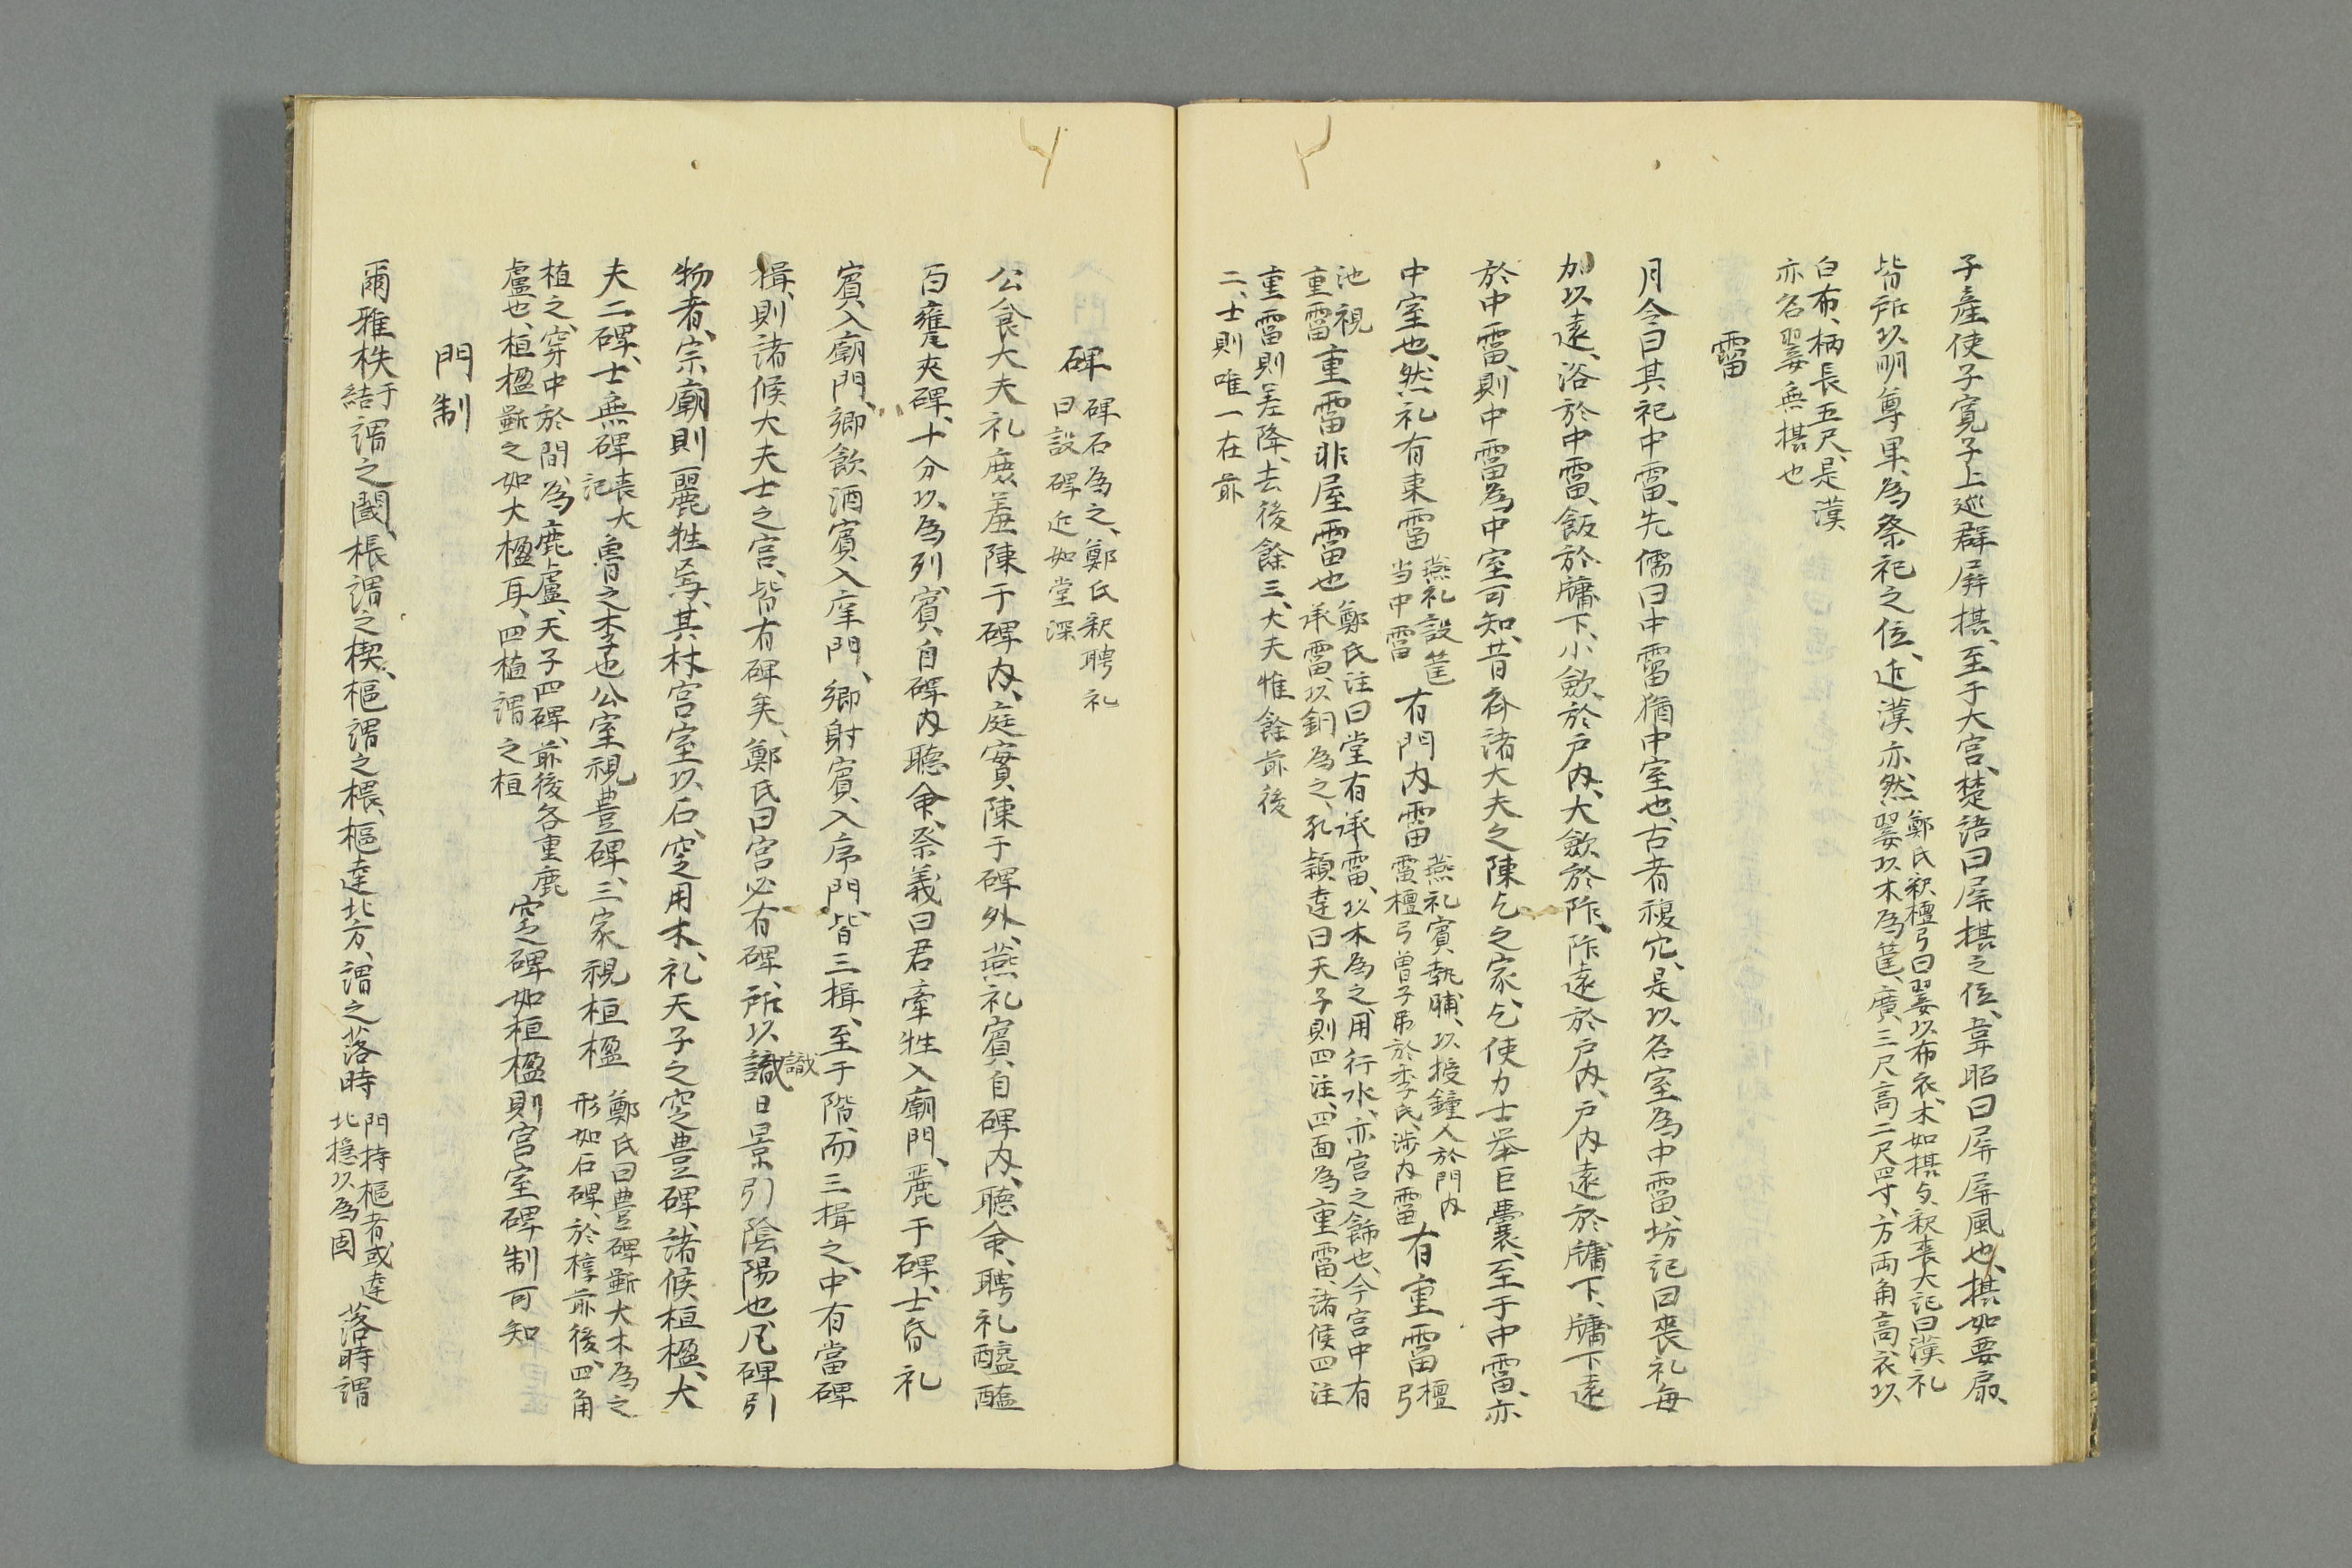 子產使子寬子上巡群屏摂、至于大宮、楚語曰屏摂之位、韋昭曰屏屏風也、摂如要扇、
皆所以明尊卑、為祭祀之位、近漢亦然
鄭氏釈檀弓曰翣以布衣、木如摂与、釈喪大記曰漢礼
翣以木為筐、廣三尺高二尺四寸、方両角高、衣以
白布、柄長五尺、是漢
亦名翣無摂也
霤
月令曰其祀中霤、先儒曰中霤猶中室也、古者複穴、是以名室為中霤、坊記曰喪礼毎
加以遠、浴於中霤、飯於牖下、小斂於戸内、大斂於阼、阼遠於戸内、戸内遠於牖下、牖下遠
於中霤、則中霤為中室可知、昔斉諸大夫之陳乞之家、乞使力士举巨囊、至于中霤、亦
中室也、然礼有東霤
燕礼設筐
当中霤
有門内霤
燕礼賓執脯、以授鐘人於門内
霤檀弓曽子弔於季氏、渉内霤
有重霤
檀
弓
池視
重霤
重霤非屋霤也
鄭氏注曰堂有承霤、以木為之、用行水、亦宮之飾也、今宮中有
承霤、以銅為之、孔穎達曰天子則四注、四面為重霤、諸侯四注
重霤則差降、去後餘三、大夫惟餘前後
二、士則唯一在前
碑
碑石為之、鄭氏釈聘礼
曰設碑近如堂深
公食大夫礼庶羞陳于碑内、庭實陳于碑外、燕礼賓自碑内、聴命、聘礼醯醢
百甕夾碑、十分以為列、賓自碑内聴命、祭義曰君牽牲入廟門、麗于碑、士昏礼
賓入廟門、郷飲酒賓入庠門、郷射賓入序門、皆三揖、至于階、而三揖之中有當碑
揖、則諸侯大夫士之宮、皆有碑矣、鄭氏曰宮必有碑、所以識
識
日景引陰陽也、凡碑引
物者、宗廟則麗牲焉、其材宮室以石、窆用木、礼天子之窆豊碑、諸侯桓楹、大
夫二碑、士無碑
喪大
記
魯之季也公室視豊碑、三家視桓楹
鄭氏曰豊碑斲大木為之
形如石碑、於椁前後、四角
植之、穿中於間、為鹿盧、天子四碑、前後各重鹿
盧也、桓楹斲之如大楹耳、四植謂之桓
窆碑如桓楹則宮室碑制可知
門制
爾雅柣
于
結
謂之閾、棖謂之楔、樞謂之椳、樞達北方、謂之落時
門持樞者或達
北檼以為固
落時謂